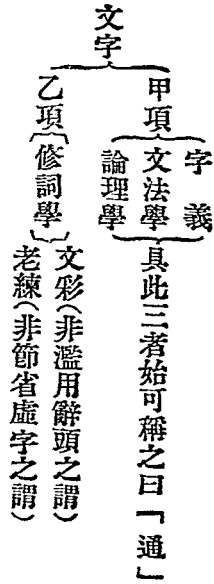 文字
甲項
字義
文法學
論理學
具此三者始可稱之曰「通」
乙項
修詞學
文彩(非濫用辭頭之謂)
老練(非節省虛字之謂)